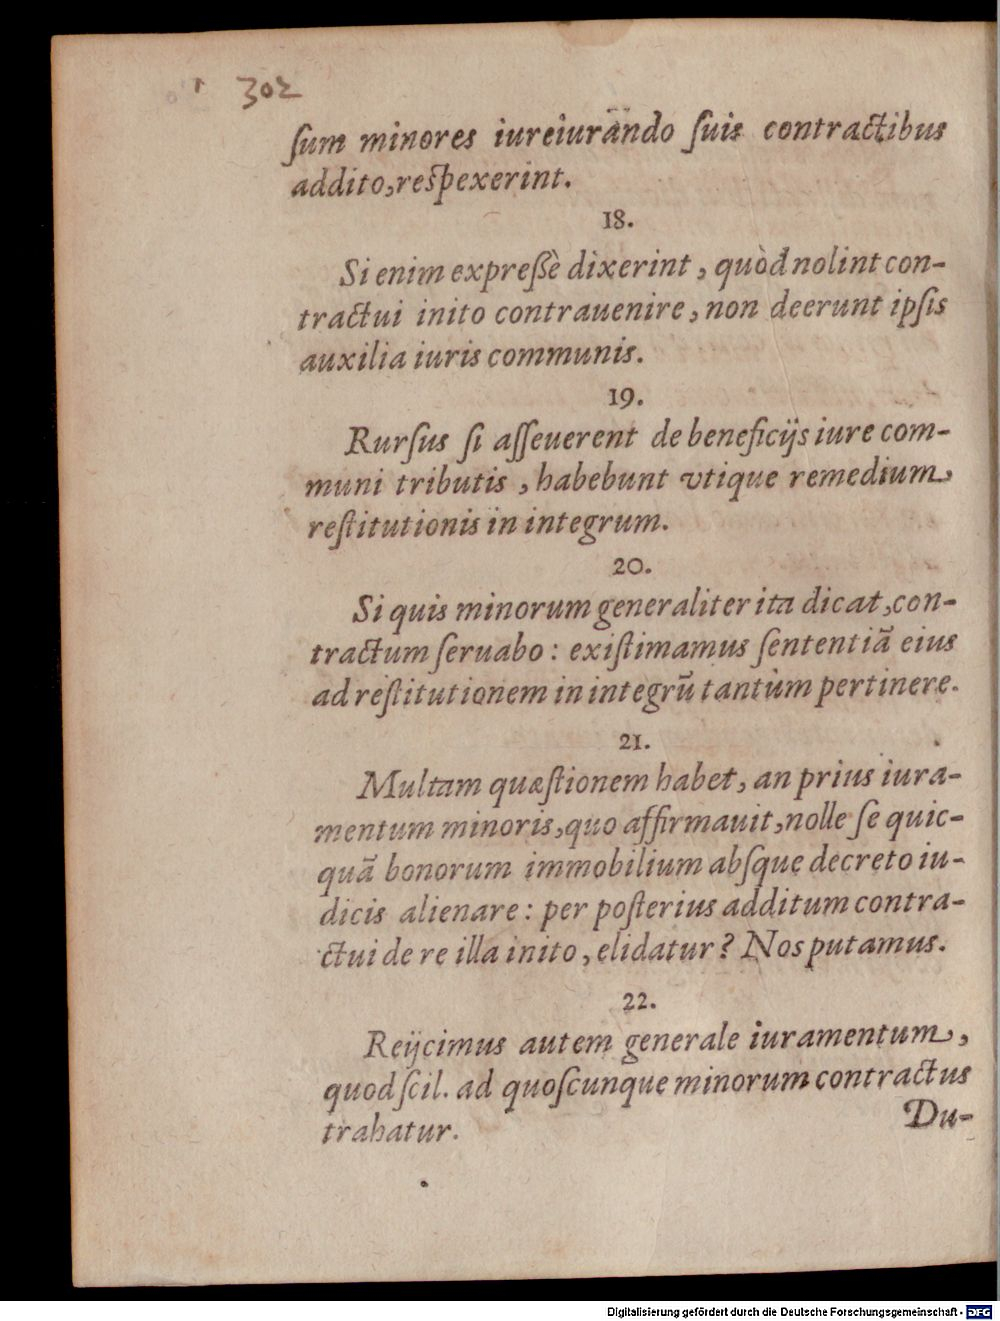 302
ſum minores iureiurando ſuis contractibus
addito, reſpexerint.
18.
Si enim expreßè dixerint, quòd nolint con-
tractui inito contrauenire, non deerunt ipſis
auxilia iuris communis.
19.
Rurſus ſi aſſeuerent de beneficijs iure com-
muni tributis, habebunt vtique remedium
reſtitutionis in integrum.
20.
Si quis minorum generaliter ita dicat, con-
tractum ſeruabo: exiſtimamus ſententiã eius
ad reſtitutionem in integrũ tantùm pertinere.
21.
Multam quæſtionem habet, an prius iura-
mentum minoris, quo affirmauit, nolle ſe quic-
quã bonorum immobilium abſque decreto iu-
dicis alienare: per poſterius additum contra-
ctui de re illa inito, elidatur? Nos putamus.
22.
Reijcimus autem generale iuramentum,
quod ſcil. ad quoſcunque minorum contractus
trahatur.
Du-
Digitalisierung gefördert durch die Deutsche Forschungsgemeinschaft - DFG